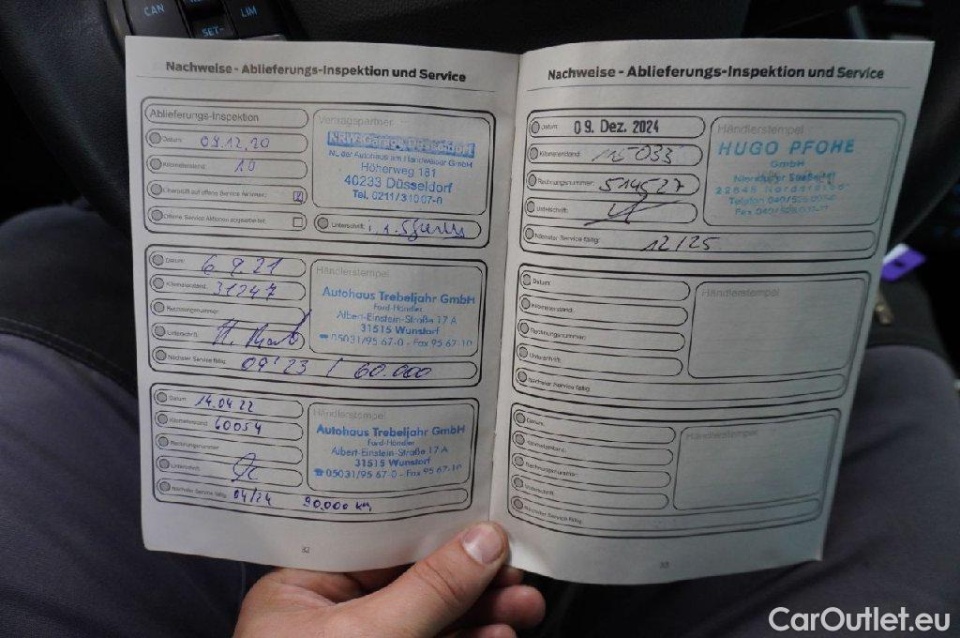 CAN
LIM
SET-
Nachweise - Ablieferungs-Inspektion und Service
Ablieferungs-Inspektion
Datum: 09.12.20
Kilometerstand: 10
Offene Service Aktionen
Vertragspartner
NL der Autohaus am Handweiser GmbH
Höherweg 181
40233 Düsseldorf
Tel. 0211/31007-0
Unterschrift:
Datum: 6 9.21
Kilometerstand: 31247
Rechnungsnummer:
Unterschrift:
Nächster Service fällig: 09/23 / 60.000
Händlerstempel
Autohaus Trebeljahr GmbH
Ford-Händler
Albert-Einstein-Straße 17 A
31515 Wunstorf
☎ 05031/95 67-0 - Fax 95 67-10
Datum: 14.04.22
Kilometerstand: 60054
Rechnungsnummer:
Unterschrift:
Nächster Service fällig: 04/24 90.000 km
Händlerstempel
Autohaus Trebeljahr GmbH
Ford-Händler
Albert-Einstein-Straße 17 A
31515 Wunstorf
☎ 05031/95 67-0 - Fax 95 67-10
32
Nachweise - Ablieferungs-Inspektion und Service
Datum: 09. Dez. 2024
Kilometerstand: 115033
Rechnungsnummer: 514527
Unterschrift:
Nächster Service fällig: 12/25
Händlerstempel
HUGO PFOHE
GmbH
22848 Norderstedt
Datum:
Kilometerstand:
Rechnungsnummer:
Unterschrift:
Nächster Service fällig:
Händlerstempel
Datum:
Kilometerstand:
Rechnungsnummer:
Unterschrift:
Nächster Service fällig:
Händlerstempel
33
CarOutlet.eu